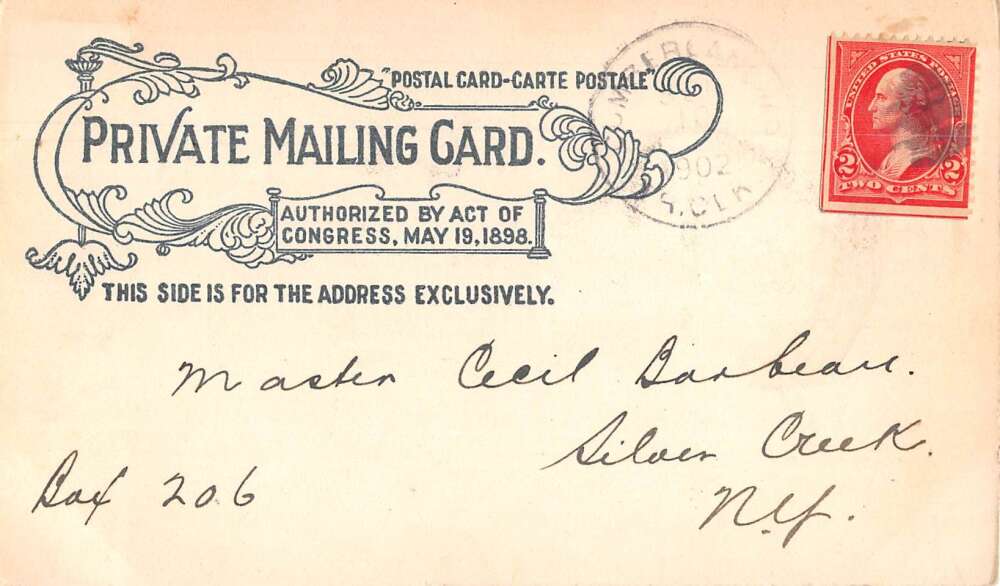 "POSTAL CARD-CARTE POSTALE"
PRIVATE MAILING CARD.
AUTHORIZED BY ACT OF
CONGRESS, MAY 19, 1898.
THIS SIDE IS FOR THE ADDRESS EXCLUSIVELY.
UNITED STATES POSTAGE
2 2
TWO CENTS
902
Master Cecil Barbeau.
Silver Creek.
Box 206
N.Y.